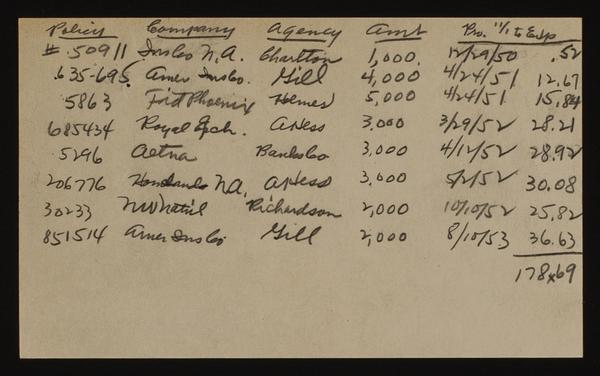 Policy Company Agency Amt Pro. 11/1 to Exp
# 50911 Ins Co N.A. Charlton 1,000. 12/29/50 .52
635-695 Amer Ins Co. Gill 4,000 4/24/51 12.67
5863 Fid Phoenix Hemes 5,000 4/24/51 15.84
685434 Royal Exch. A Hess 3,000 3/29/52 28.21
5296 Aetna Banks Co 3,000 4/12/52 28.92
206776 N.A. A Hess 3,000 5/2/52 30.08
30233 NW Nat'l Richardson 2,000 10/10/52 25.82
851514 Amer Ins Co Gill 2,000 8/10/53 36.63
178.69